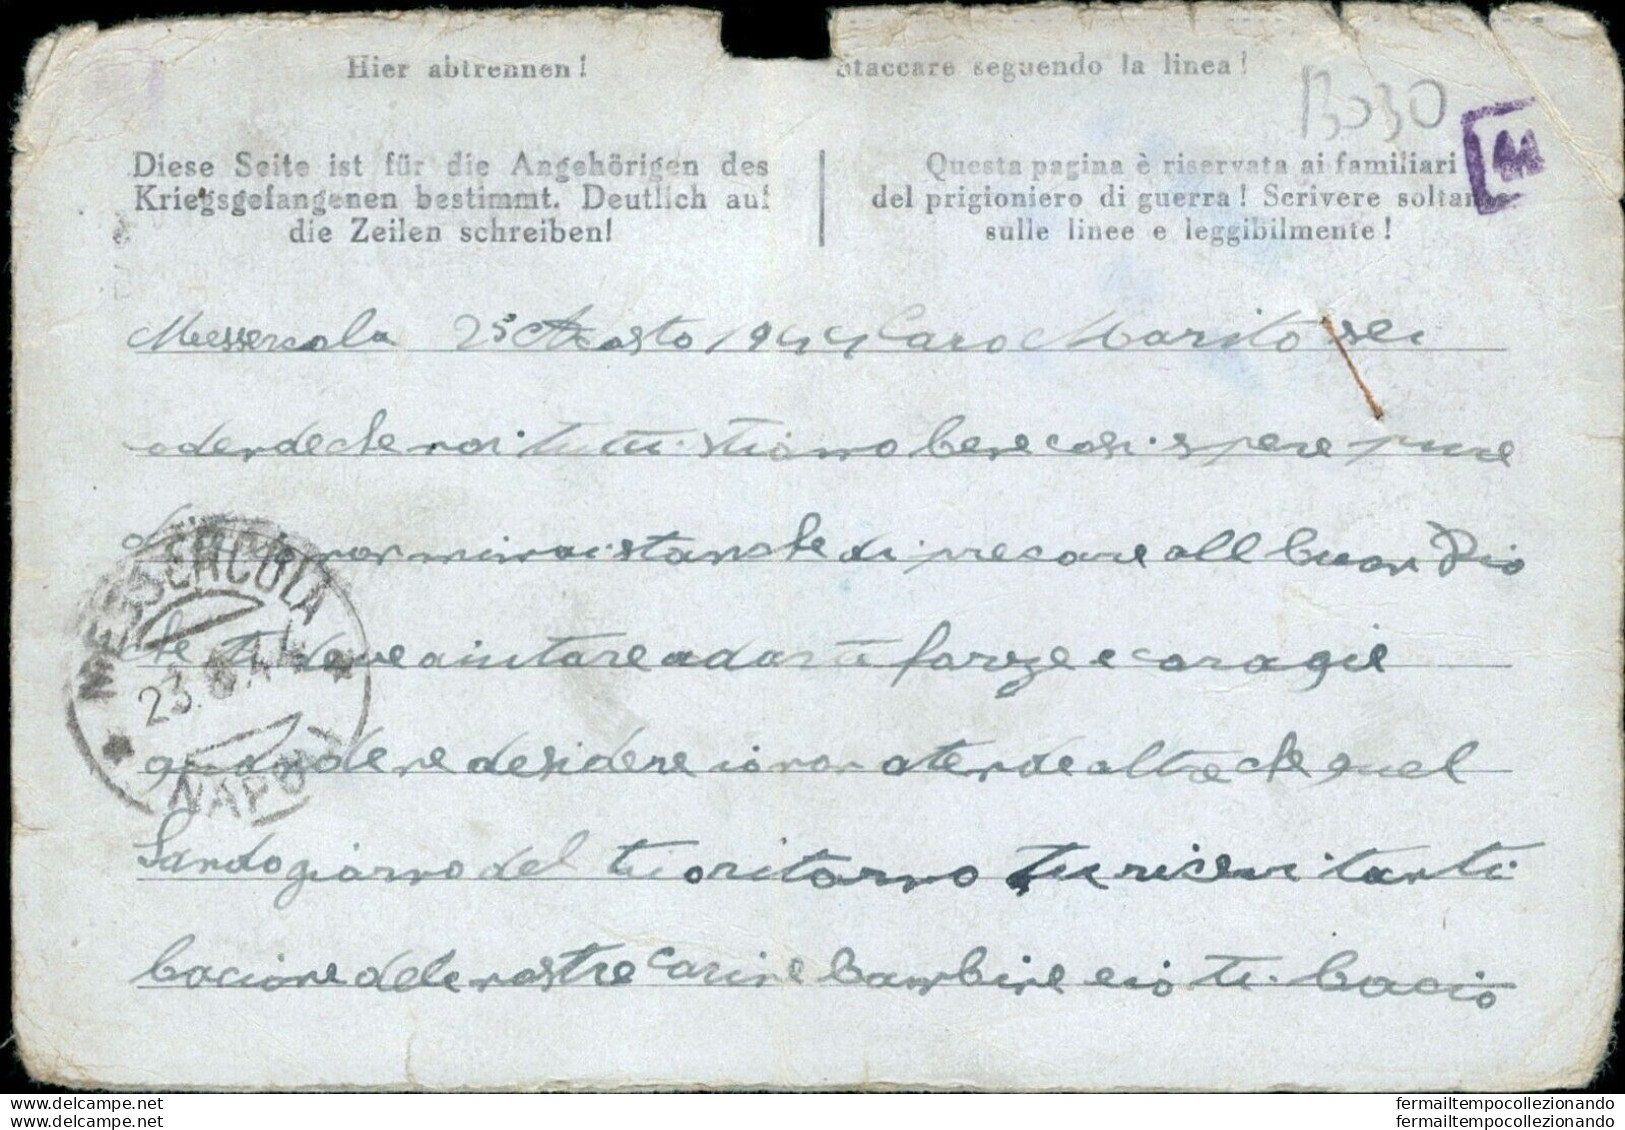 Hier abtrennen!
Staccare seguendo la linea!
Bo30
Diese Seite ist für die Angehörigen des
Kriegsgefangenen bestimmt. Deutlich auf
die Zeilen schreiben!
Questa pagina è riservata ai familiari
del prigioniero di guerra! Scrivere soltanto
sulle linee e leggibilmente!
44
Messercola 23 Agosto 1944 Caro Marito
che noi tutti stiamo bene cosi spere pure
di non mi di precare all buon Dio
che ti deve aiutare a dar ti forze e coragie
desidere io non atende altre che quel
Sando giorno del tuo ritorno tu ricevi tanti
bacione dele nostre Carine bambine e io ti bacio
MESSERCOLA
23.8.44
NAPOLI
www.delcampe.net
www.delcampe.net
fermailtempocollezionando
fermailtempocollezionando